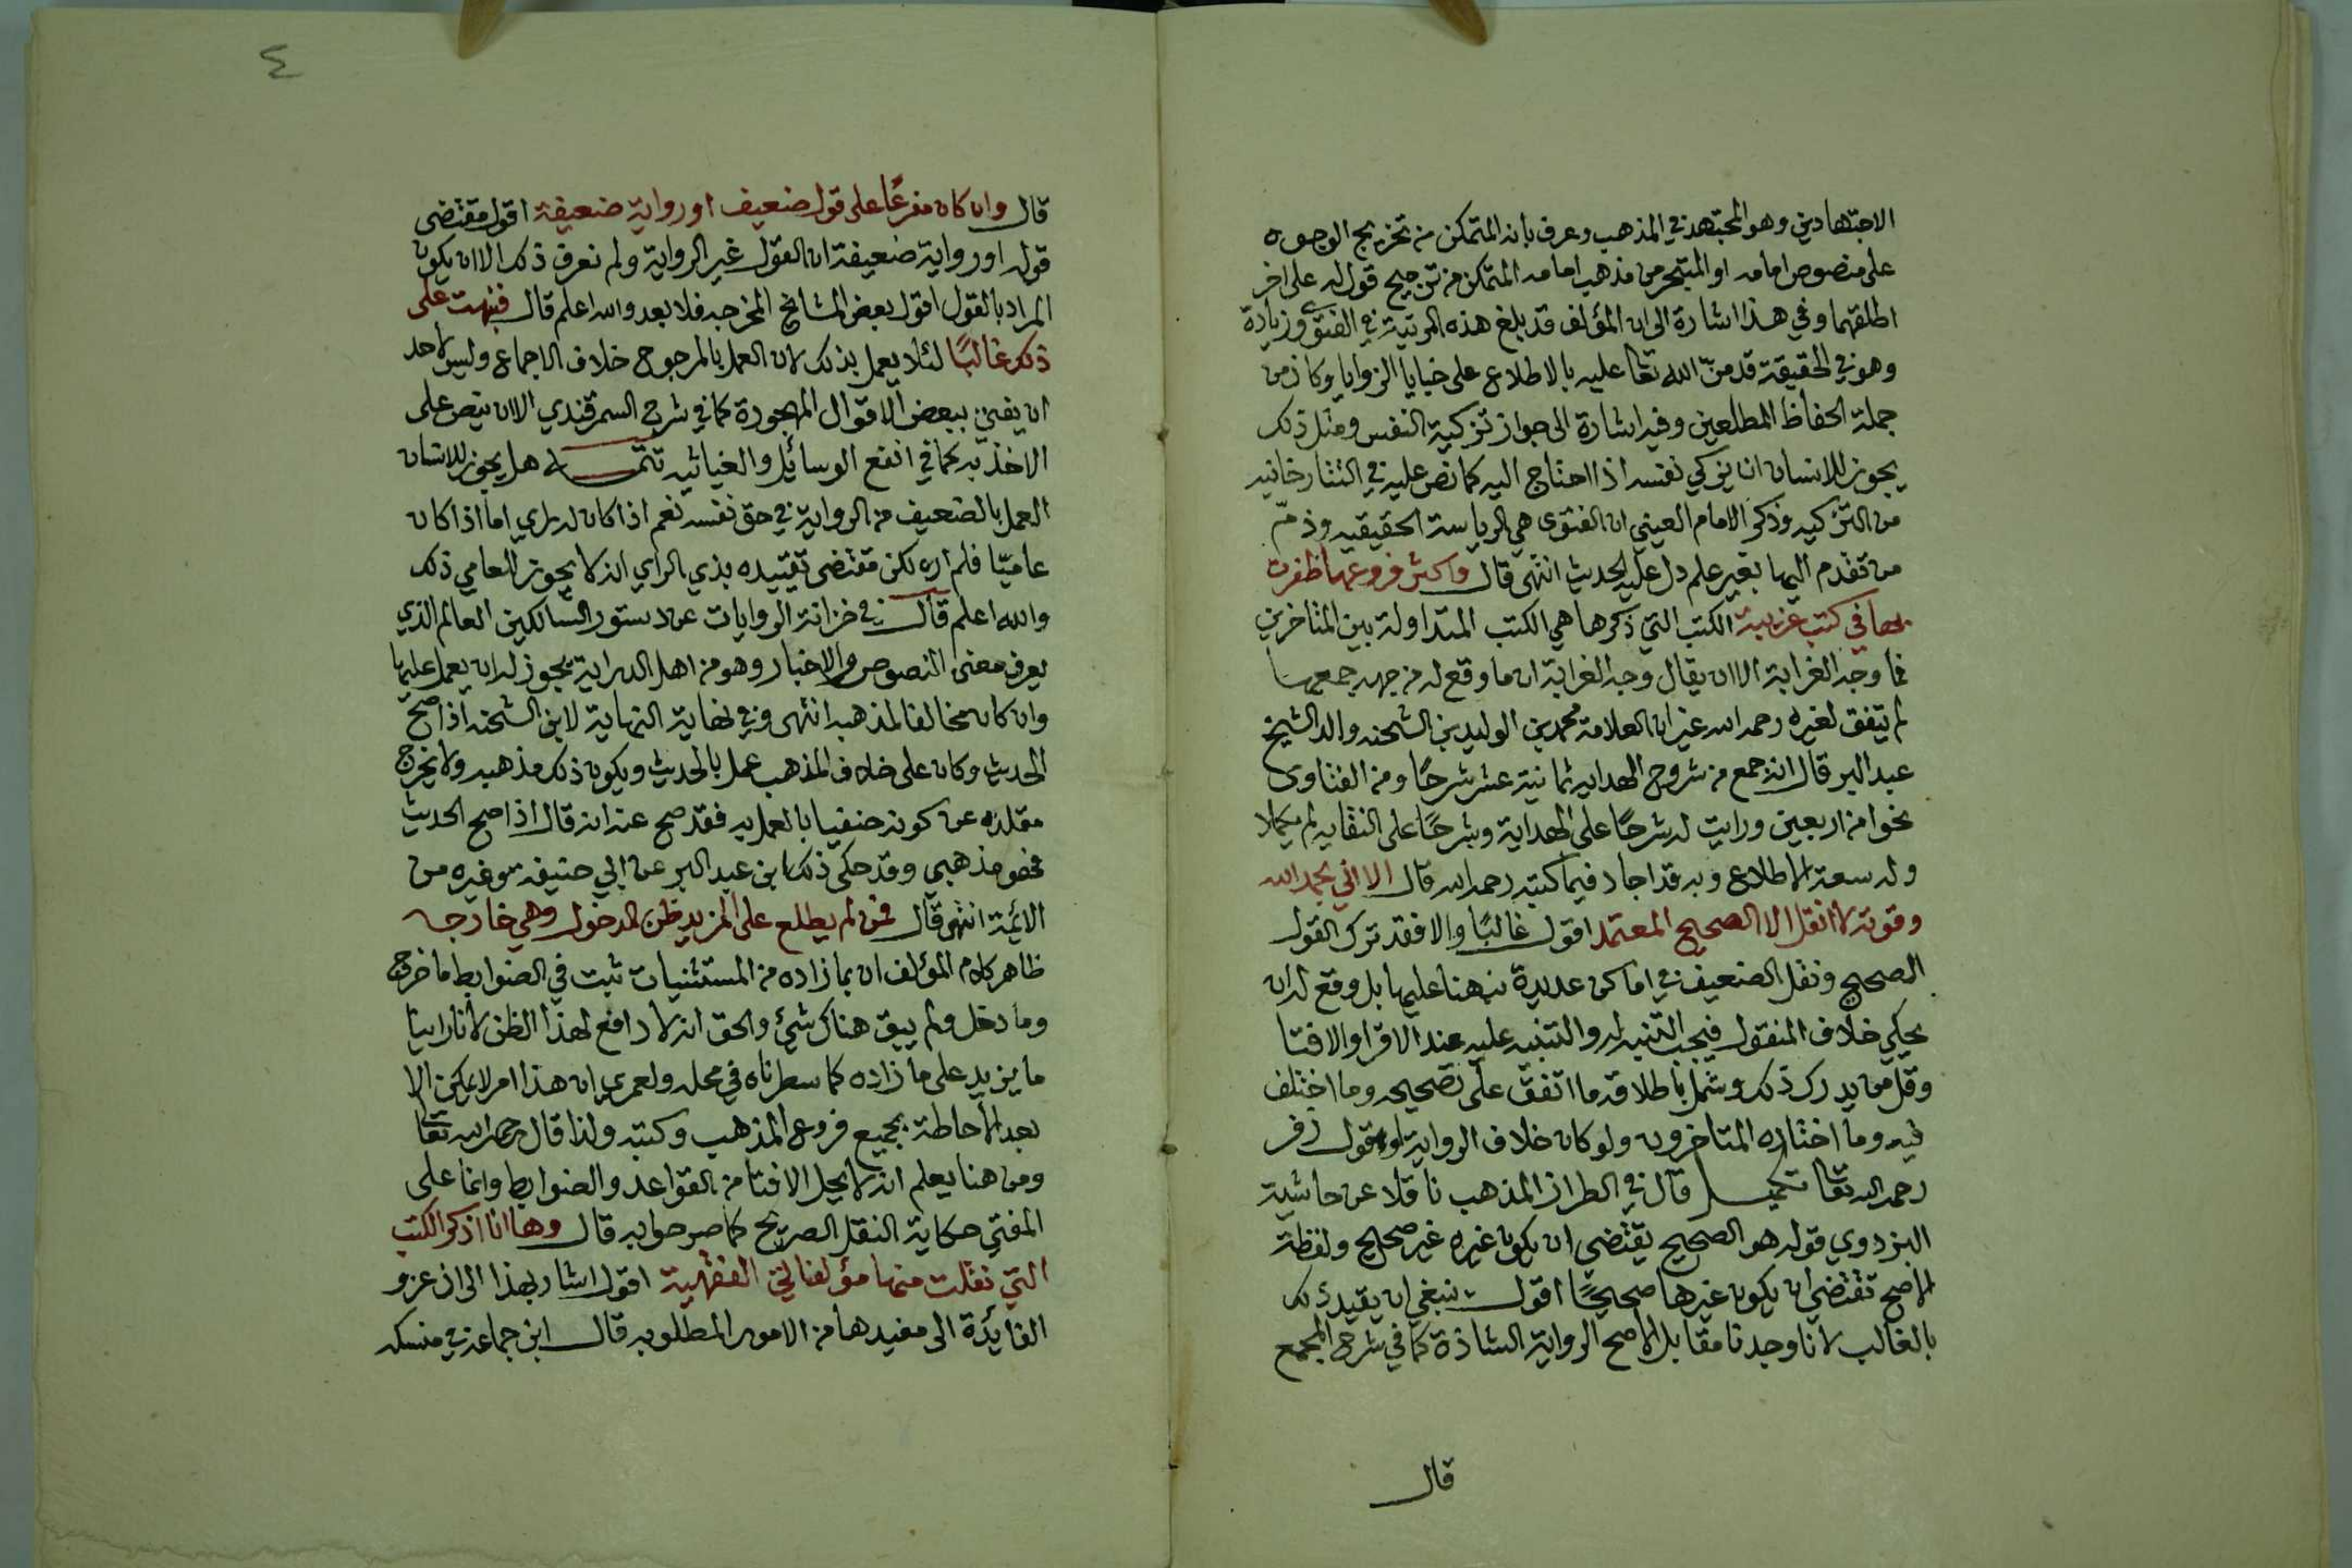 الاجتهادين وهو المجتهد في المذهب وعرف بانه المتمكن من تخريج الوجوه
على منصوص امامه او المتبحر من مذهب امامه المتمكن من ترجيح قول له على اخر
اطلقهما وفي هذا اشارة الى ان المؤلف قد بلغ هذه المرتبة في الفتوى وزيادة
وهو في الحقيقة قد منّ الله تعا عليه بالاطلاع على خبايا الزوايا وكان من
جملة الحفاظ المطلعين وفيه اشارة الى جواز تزكية النفس ومثل ذلك
يجوز للانسان ان يزكي نفسه اذا احتاج اليه كما نص عليه في التتارخانيه
من التزكيه وذكر الامام العيني ان الفتوى هي الرياسة الحقيقيه وذمّ
من تقدم اليها بغير علم دل عليه الحديث انتهى قال واكثر فروعها ظفرت
بها في كتب غريبة الكتب التي ذكرها هي الكتب المتداولة بين المتاخرين
فما وجه الغرابة الا ان يقال وجه الغرابة ان ما وقع له من جهة جمعها
لم يتفق لغيره رحمه الله غير ان العلامة محمد بن الوليد بن الشحنه والد الشيخ
عبد البر قال انه جمع من شروح الهدايه ثمانية عشر شرحًا ومن الفتاوى
نحوا من اربعين ورايت له شرحًا على الهداية وشرحًا على النقايه لم يكملا
وله سعة الاطلاع وبه قد اجاد فيما كتبه رحمه الله قال الا اني بحمد الله
وقوته لا انقل الا الصحيح المعتمد اقول غالبًا والا فقد ترك القول
الصحيح ونقل الضعيف في اماكن عديدة نبهنا عليها بل وقع له ان
يحكي خلاف المنقول فيجب التنبه له والتنبيه عليه عند الاقرا والافتا
وقل من يدرك ذلك وشمل باطلاقه ما اتفق على تصحيحه وما اختلف
فيه وما اختاره المتاخرون ولو كان خلاف الرواية لو بقول زفر
رحمه الله تعا تكميل قال في الطراز المذهب ناقلا عن حاشية
البزدوي قوله هو الصحيح يقتضي ان يكون غيره غير صحيح ولفظة
الاصح تقتضي ان يكون غيرها صحيحًا اقول ينبغي ان يقيد ذلك
بالغالب لانا وجدنا مقابل الاصح الرواية الشاذة كما في شرح المجمع
قال
٤
قال وان كان مفرعًا على قول ضعيف او رواية ضعيفة اقول مقتضى
قوله او رواية ضعيفة ان القول غير الرواية ولم نعرف ذلك الا ان يكون
المراد بالقول اقول بعض المشايخ المخرجه فلا بعد والله اعلم قال فنبهت على
ذلك غالبًا لئلا يعمل بذلك لان العمل بالمرجوح خلاف الاجماع وليس لاحد
ان يفتي ببعض الاقوال المهجورة كما في شرح السمرقندي الا ان ينص على
الاخذ به كما في انفع الوسائل والغياثيه تتمه هل يجوز للانسان
العمل بالضعيف من الرواية في حق نفسه نعم اذا كان له راي اما اذا كان
عاميّا فلم اره لكن مقتضى تقييده بذي الراي انه لا يجوز للعامي ذلك
والله اعلم قال في خزانة الروايات عن دستور السالكين العالم الذي
يعرف معنى النصوص والاخبار وهو من اهل الدراية يجوز له ان يعمل عليها
وان كان مخالفا لمذهبه انتهى وفي نهاية النهاية لابن الشحنه اذا صحّ
الحديث وكان على خلاف المذهب عمل بالحديث ويكون ذلك مذهبه ولا يخرج
مقلده عن كونه حنفيا بالعمل به فقد صح عنه انه قال اذا صح الحديث
فهو مذهبي وقد حكى ذلك ابن عبد البر عن ابي حنيفه وغيره من
الائمة انتهى قال فمن لم يطلع على المزيد ظن المدخول وهي خارجه
ظاهر كلام المؤلف ان بما زاده من المستثنيات ثبت في الضوابط ما خرج
وما دخل ولم يبق هناك شيء والحق انه لا دافع لهذا الظن لانا راينا
ما يزيد على ما زاده كما سطرناه في محله ولعمري ان هذا امر لا يمكن الا
بعد الاحاطة بجميع فروع المذهب وكتبه ولذا قال رحمه الله تعا
ومن هنا يعلم انه لا يحل الافتا من القواعد والضوابط وانما على
المفتي حكاية النقل الصريح كما صرحوا به قال وها انا اذكر الكتب
التي نقلت منها مؤلفاتي الفقهية اقول اشار بهذا الى ان عزو
الفايدة الى مفيدها من الامور المطلوبه قال ابن جماعة في منسكه